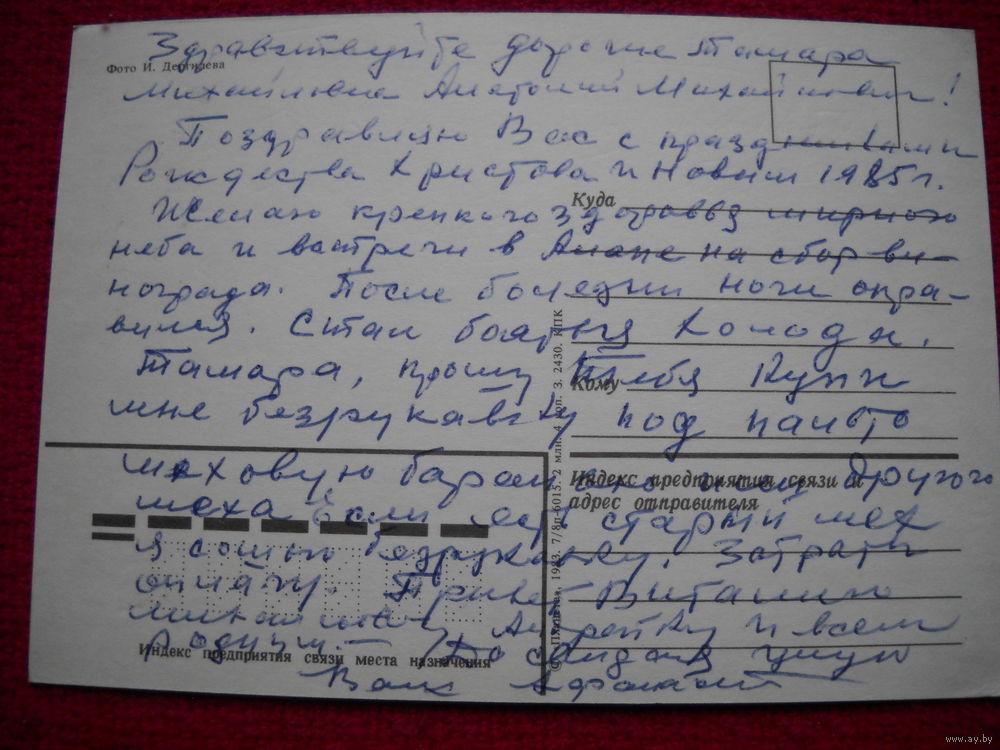 Здравствуйте дорогие Тамара
Фото И. Дергилева
Михайловна Анатолий Михайлович!
Поздравляю Вас с праздниками
Рождества Христова и Новым 1985 г.
Куда
Желаю крепкого здоровья мирного
неба и встречи в Анапе на сбор ви-
нограда. После болезни ноги опра-
вился. Стал бояться холода.
Тамара, прошу Тебя купи
Кому
мне безрукавку под пальто
меховую баран или другого
Индекс предприятия связи и
адрес отправителя
меха если есть старый мех
я сошью безрукавку. Затраты
оплачу. Привет Виталию
Андрейку и всем
родным. До свидания целую
Индекс предприятия связи места назначения
Ваш Афанасий
2 млн. 4 коп. З. 2430. КПК
www.ay.by